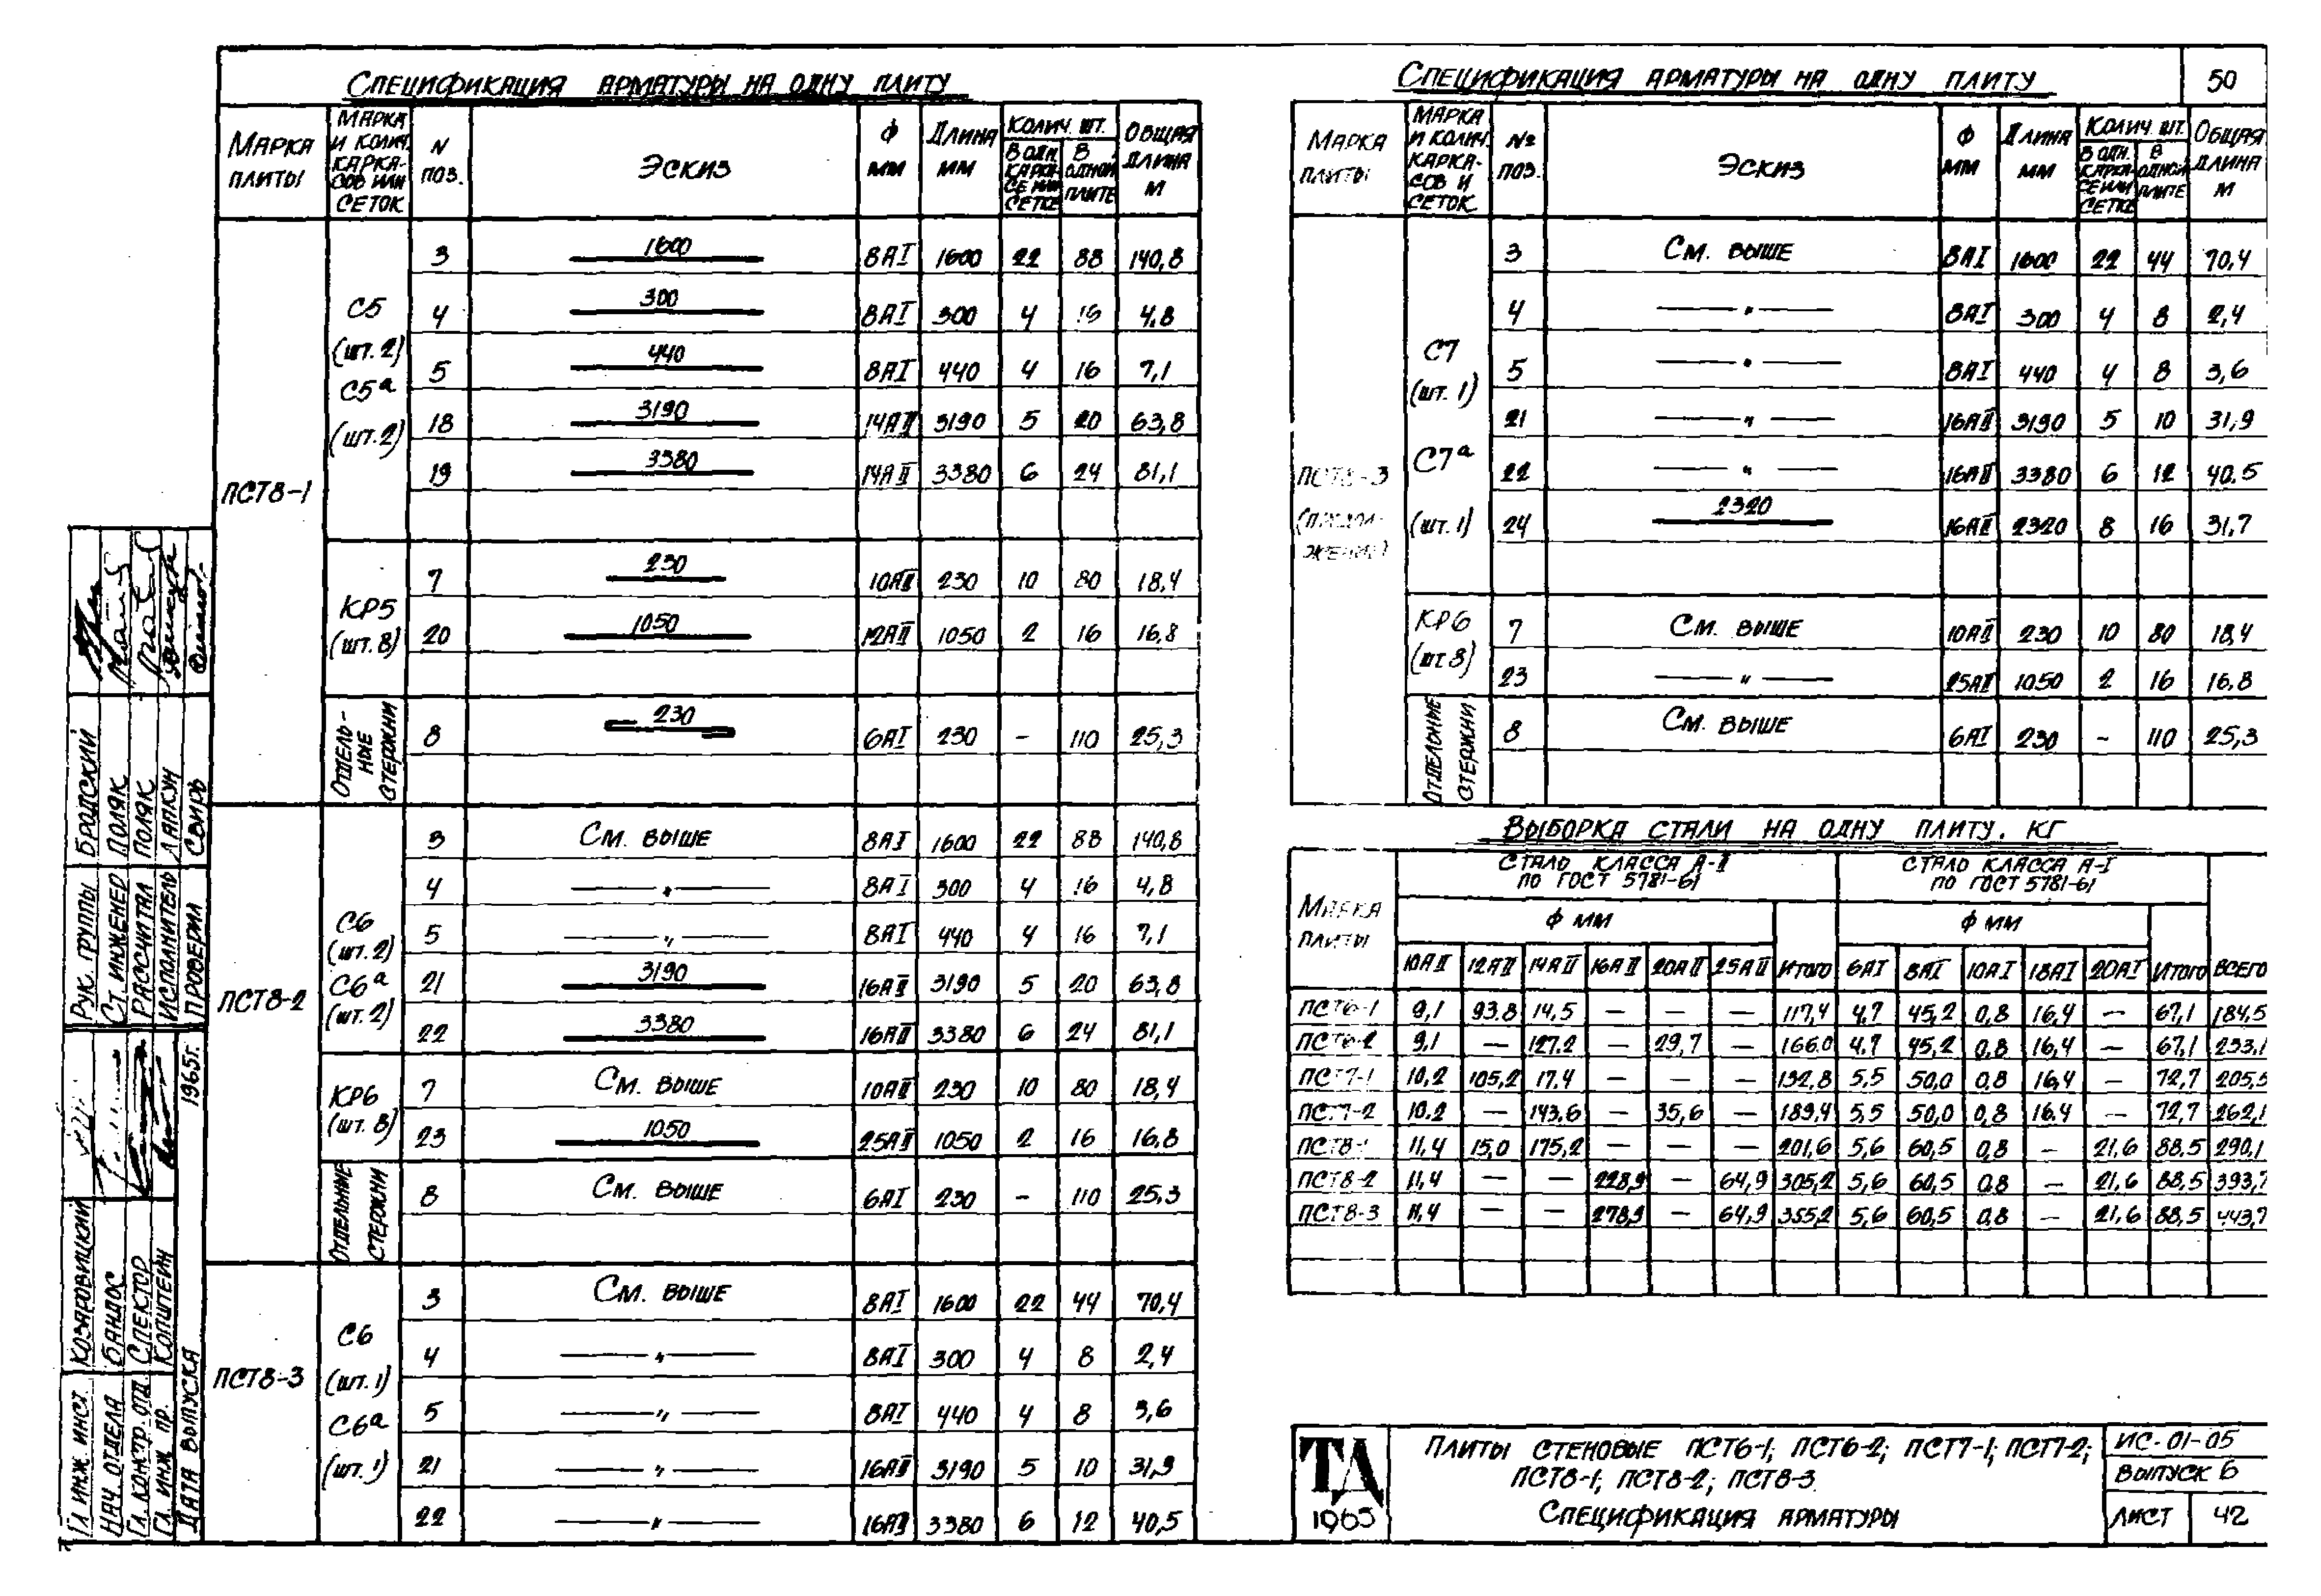 Спецификация арматуры на одну плиту
Марка плиты | Марка и колич. каркасов или сеток | N поз. | Эскиз | Ф мм | Длина мм | Колич. шт. | В одн. каркасе или сетке | В одной плите | Общая длина м
ПСТ8-1
С5 (шт. 2) С5а (шт. 2)
3 | 1600 | 8АI | 1600 | 22 | 88 | 140,8
4 | 300 | 8АI | 300 | 4 | 16 | 4,8
5 | 440 | 8АI | 440 | 4 | 16 | 7,1
18 | 3190 | 14АII | 3190 | 5 | 20 | 63,8
19 | 3380 | 14АII | 3380 | 6 | 24 | 81,1
КР5 (шт. 8)
7 | 230 | 10АII | 230 | 10 | 80 | 18,4
20 | 1050 | 12АII | 1050 | 2 | 16 | 16,8
Отдельные стержни
8 | 230 | 6АI | 230 | - | 110 | 25,3
ПСТ8-2
С6 (шт. 2) С6а (шт. 2)
3 | См. выше | 8АI | 1600 | 22 | 88 | 140,8
4 | — " — | 8АI | 300 | 4 | 16 | 4,8
5 | — " — | 8АI | 440 | 4 | 16 | 7,1
21 | 3190 | 16АII | 3190 | 5 | 20 | 63,8
22 | 3380 | 16АII | 3380 | 6 | 24 | 81,1
КР6 (шт. 8)
7 | См. выше | 10АII | 230 | 10 | 80 | 18,4
23 | 1050 | 25АII | 1050 | 2 | 16 | 16,8
Отдельные стержни
8 | См. выше | 6АI | 230 | - | 110 | 25,3
ПСТ8-3
С6 (шт. 1) С6а (шт. 1)
3 | См. выше | 8АI | 1600 | 22 | 44 | 70,4
4 | — " — | 8АI | 300 | 4 | 8 | 2,4
5 | — " — | 8АI | 440 | 4 | 8 | 3,6
21 | — " — | 16АII | 3190 | 5 | 10 | 31,9
22 | — " — | 16АII | 3380 | 6 | 12 | 40,5
Спецификация арматуры на одну плиту
50
Марка плиты | Марка и колич. каркасов и сеток | № поз. | Эскиз | Ф мм | Длина мм | Колич. шт. | В одн. каркасе или сетке | В одной плите | Общая длина м
ПСТ8-3 (продолжение)
С7 (шт. 1) С7а (шт. 1)
3 | См. выше | 8АI | 1600 | 22 | 44 | 70,4
4 | — " — | 8АI | 300 | 4 | 8 | 2,4
5 | — " — | 8АI | 440 | 4 | 8 | 3,6
21 | — " — | 16АII | 3190 | 5 | 10 | 31,9
22 | — " — | 16АII | 3380 | 6 | 12 | 40.5
24 | 2320 | 16АII | 2320 | 8 | 16 | 31,7
КР6 (шт 8)
7 | См. выше | 10АII | 230 | 10 | 80 | 18,4
23 | — " — | 25АII | 1050 | 2 | 16 | 16,8
Отдельные стержни
8 | См. выше | 6АI | 230 | - | 110 | 25,3
Выборка стали на одну плиту. кг
Марка плиты | Сталь класса А-II по ГОСТ 5781-61 | Сталь класса А-I по ГОСТ 5781-61
Ф мм | Ф мм
10АII | 12АII | 14АII | 16АII | 20АII | 25АII | Итого | 6АI | 8АI | 10АI | 18АI | 20АI | Итого | Всего
ПСТ6-1 | 9,1 | 93,8 | 14,5 | — | — | — | 117,4 | 4,7 | 45,2 | 0,8 | 16,4 | — | 67,1 | 184,5
ПСТ6-2 | 9,1 | — | 127.2 | — | 29,7 | — | 166.0 | 4.7 | 45,2 | 0,8 | 16,4 | — | 67,1 | 233,1
ПСТ7-1 | 10,2 | 105,2 | 17.4 | — | — | — | 132,8 | 5,5 | 50,0 | 0,8 | 16,4 | — | 72,7 | 205,5
ПСТ7-2 | 10.2 | — | 143,6 | — | 35,6 | — | 189,4 | 5,5 | 50,0 | 0,8 | 16.4 | — | 72,7 | 262,1
ПСТ8-1 | 11,4 | 15,0 | 175,2 | — | — | — | 201,6 | 5,6 | 60,5 | 0,8 | — | 21,6 | 88,5 | 290,1
ПСТ8-2 | 11,4 | — | — | 228,9 | — | 64,9 | 305,2 | 5,6 | 60,5 | 0,8 | — | 21,6 | 88,5 | 393,7
ПСТ8-3 | 11,4 | — | — | 278,9 | — | 64,9 | 355,2 | 5,6 | 60,5 | 0,8 | — | 21,6 | 88,5 | 443,7
ТА 1965
Плиты стеновые ПСТ6-1; ПСТ6-2; ПСТ7-1; ПСТ7-2;
ПСТ8-1; ПСТ8-2; ПСТ8-3.
Спецификация арматуры
ИС-01-05
Выпуск 6
Лист 42
Рук. группы Бродский
Ст. инженер Поляк
Рассчитал Поляк
Исполнитель Лапкун
Проверил Свирь
Гл. инж. инст. Козаровицкий
Нач. отдела Бандос
Гл. констр. отд. Спектор
Гл. инж. пр. Копштейн
Дата выпуска 1965г.